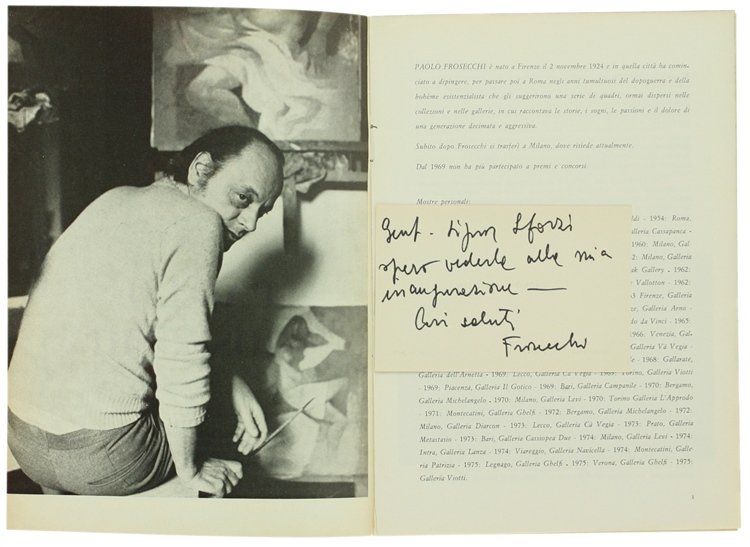 PAOLO FROSECCHI è nato a Firenze il 2 novembre 1924 e in quella città ha comin-
ciato a dipingere, per passare poi a Roma negli anni tumultuosi del dopoguerra e della
bohème esistenzialista che gli suggerirono una serie di quadri, ormai dispersi nelle
collezioni e nelle gallerie, in cui raccontava le storie, i sogni, le passioni e il dolore di
una generazione decimata e aggressiva.
Subito dopo Frosecchi si trasferì a Milano, dove risiede attualmente.
Dal 1969 non ha più partecipato a premi e concorsi
Mostre personali:
ldi - 1954: Roma,
alleria Cassapanca -
1960: Milano, Gal-
2: Milano, Galleria
ak Gallery - 1962:
Vallotton - 1962:
3 Firenze, Galleria
ze, Galleria Arno -
do da Vinci - 1965:
1966: Venezia, Gal-
Galleria Cà Vegia -
le - 1968: Gallarate,
Gent. Signor Sforzi
spero vederla alla mia
inaugurazione —
Cari saluti
Frosecchi
Galleria dell'Arnetta - 1969: Lecco, Galleria Cà Vegia - 1969: Torino, Galleria Viotti
- 1969: Piacenza, Galleria Il Gotico - 1969: Bari, Galleria Campanile - 1970: Bergamo,
Galleria Michelangelo - 1970: Milano, Galleria Levi - 1970: Torino Galleria L'Approdo
- 1971: Montecatini, Galleria Ghelfi - 1972: Bergamo, Galleria Michelangelo - 1972:
Milano, Galleria Diarcon - 1973: Lecco, Galleria Cà Vegia - 1973: Prato, Galleria
Metastasio - 1973: Bari, Galleria Cassiopea Due - 1974: Milano, Galleria Levi - 1974:
Intra, Galleria Lanza - 1974: Viareggio, Galleria Navicella - 1974: Montecatini, Galle-
ria Patrizia - 1975: Legnago, Galleria Ghelfi - 1975: Verona, Galleria Ghelfi - 1975:
Galleria Viotti.
1